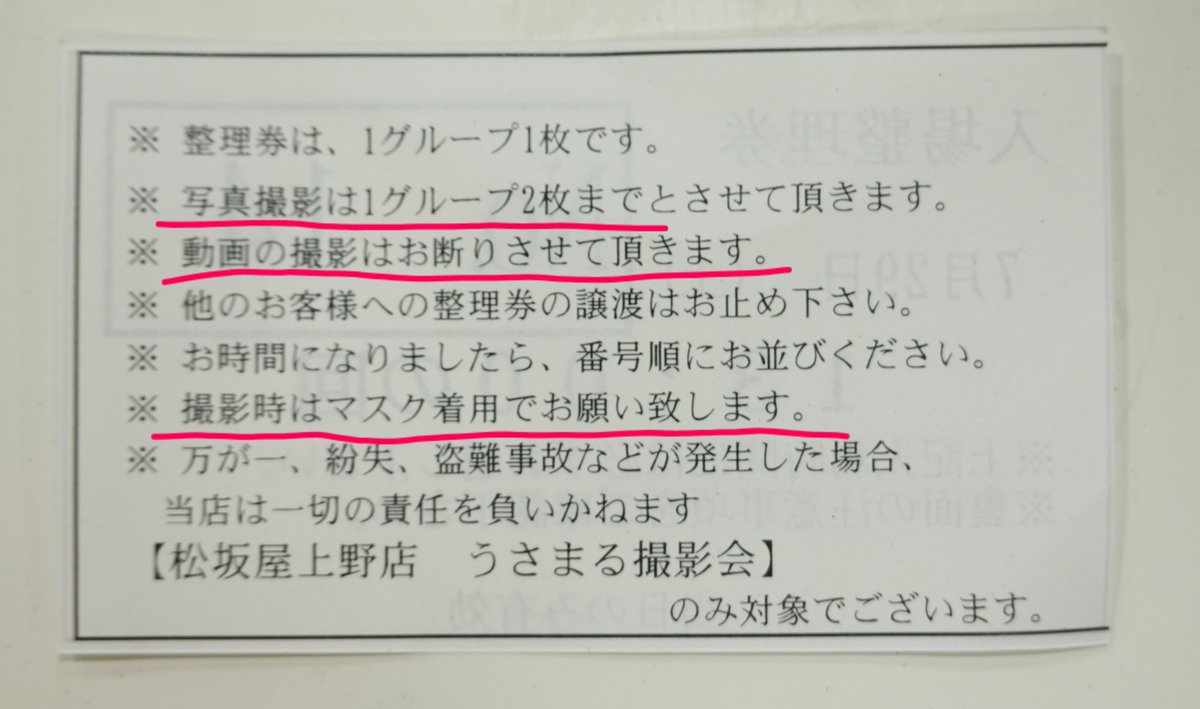 ※ 整理券は、1グループ1枚です。
※ 写真撮影は1グループ2枚までとさせて頂きます。
※ 動画の撮影はお断りさせて頂きます。
※ 他のお客様への整理券の譲渡はお止め下さい。
※ お時間になりましたら、番号順にお並びください。
※ 撮影時はマスク着用でお願い致します。
※ 万が一、紛失、盗難事故などが発生した場合、
当店は一切の責任を負いかねます
【松坂屋上野店　うさまる撮影会】
のみ対象でございます。
入場整理券
7月29日